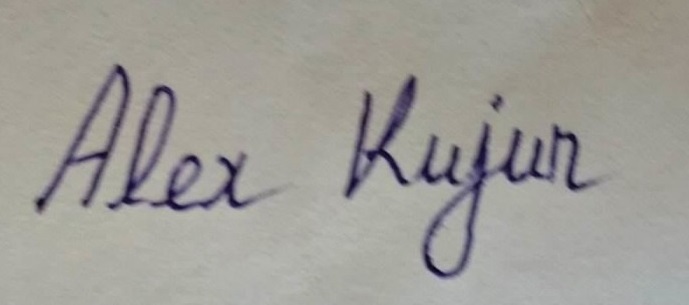 Alex Kujur